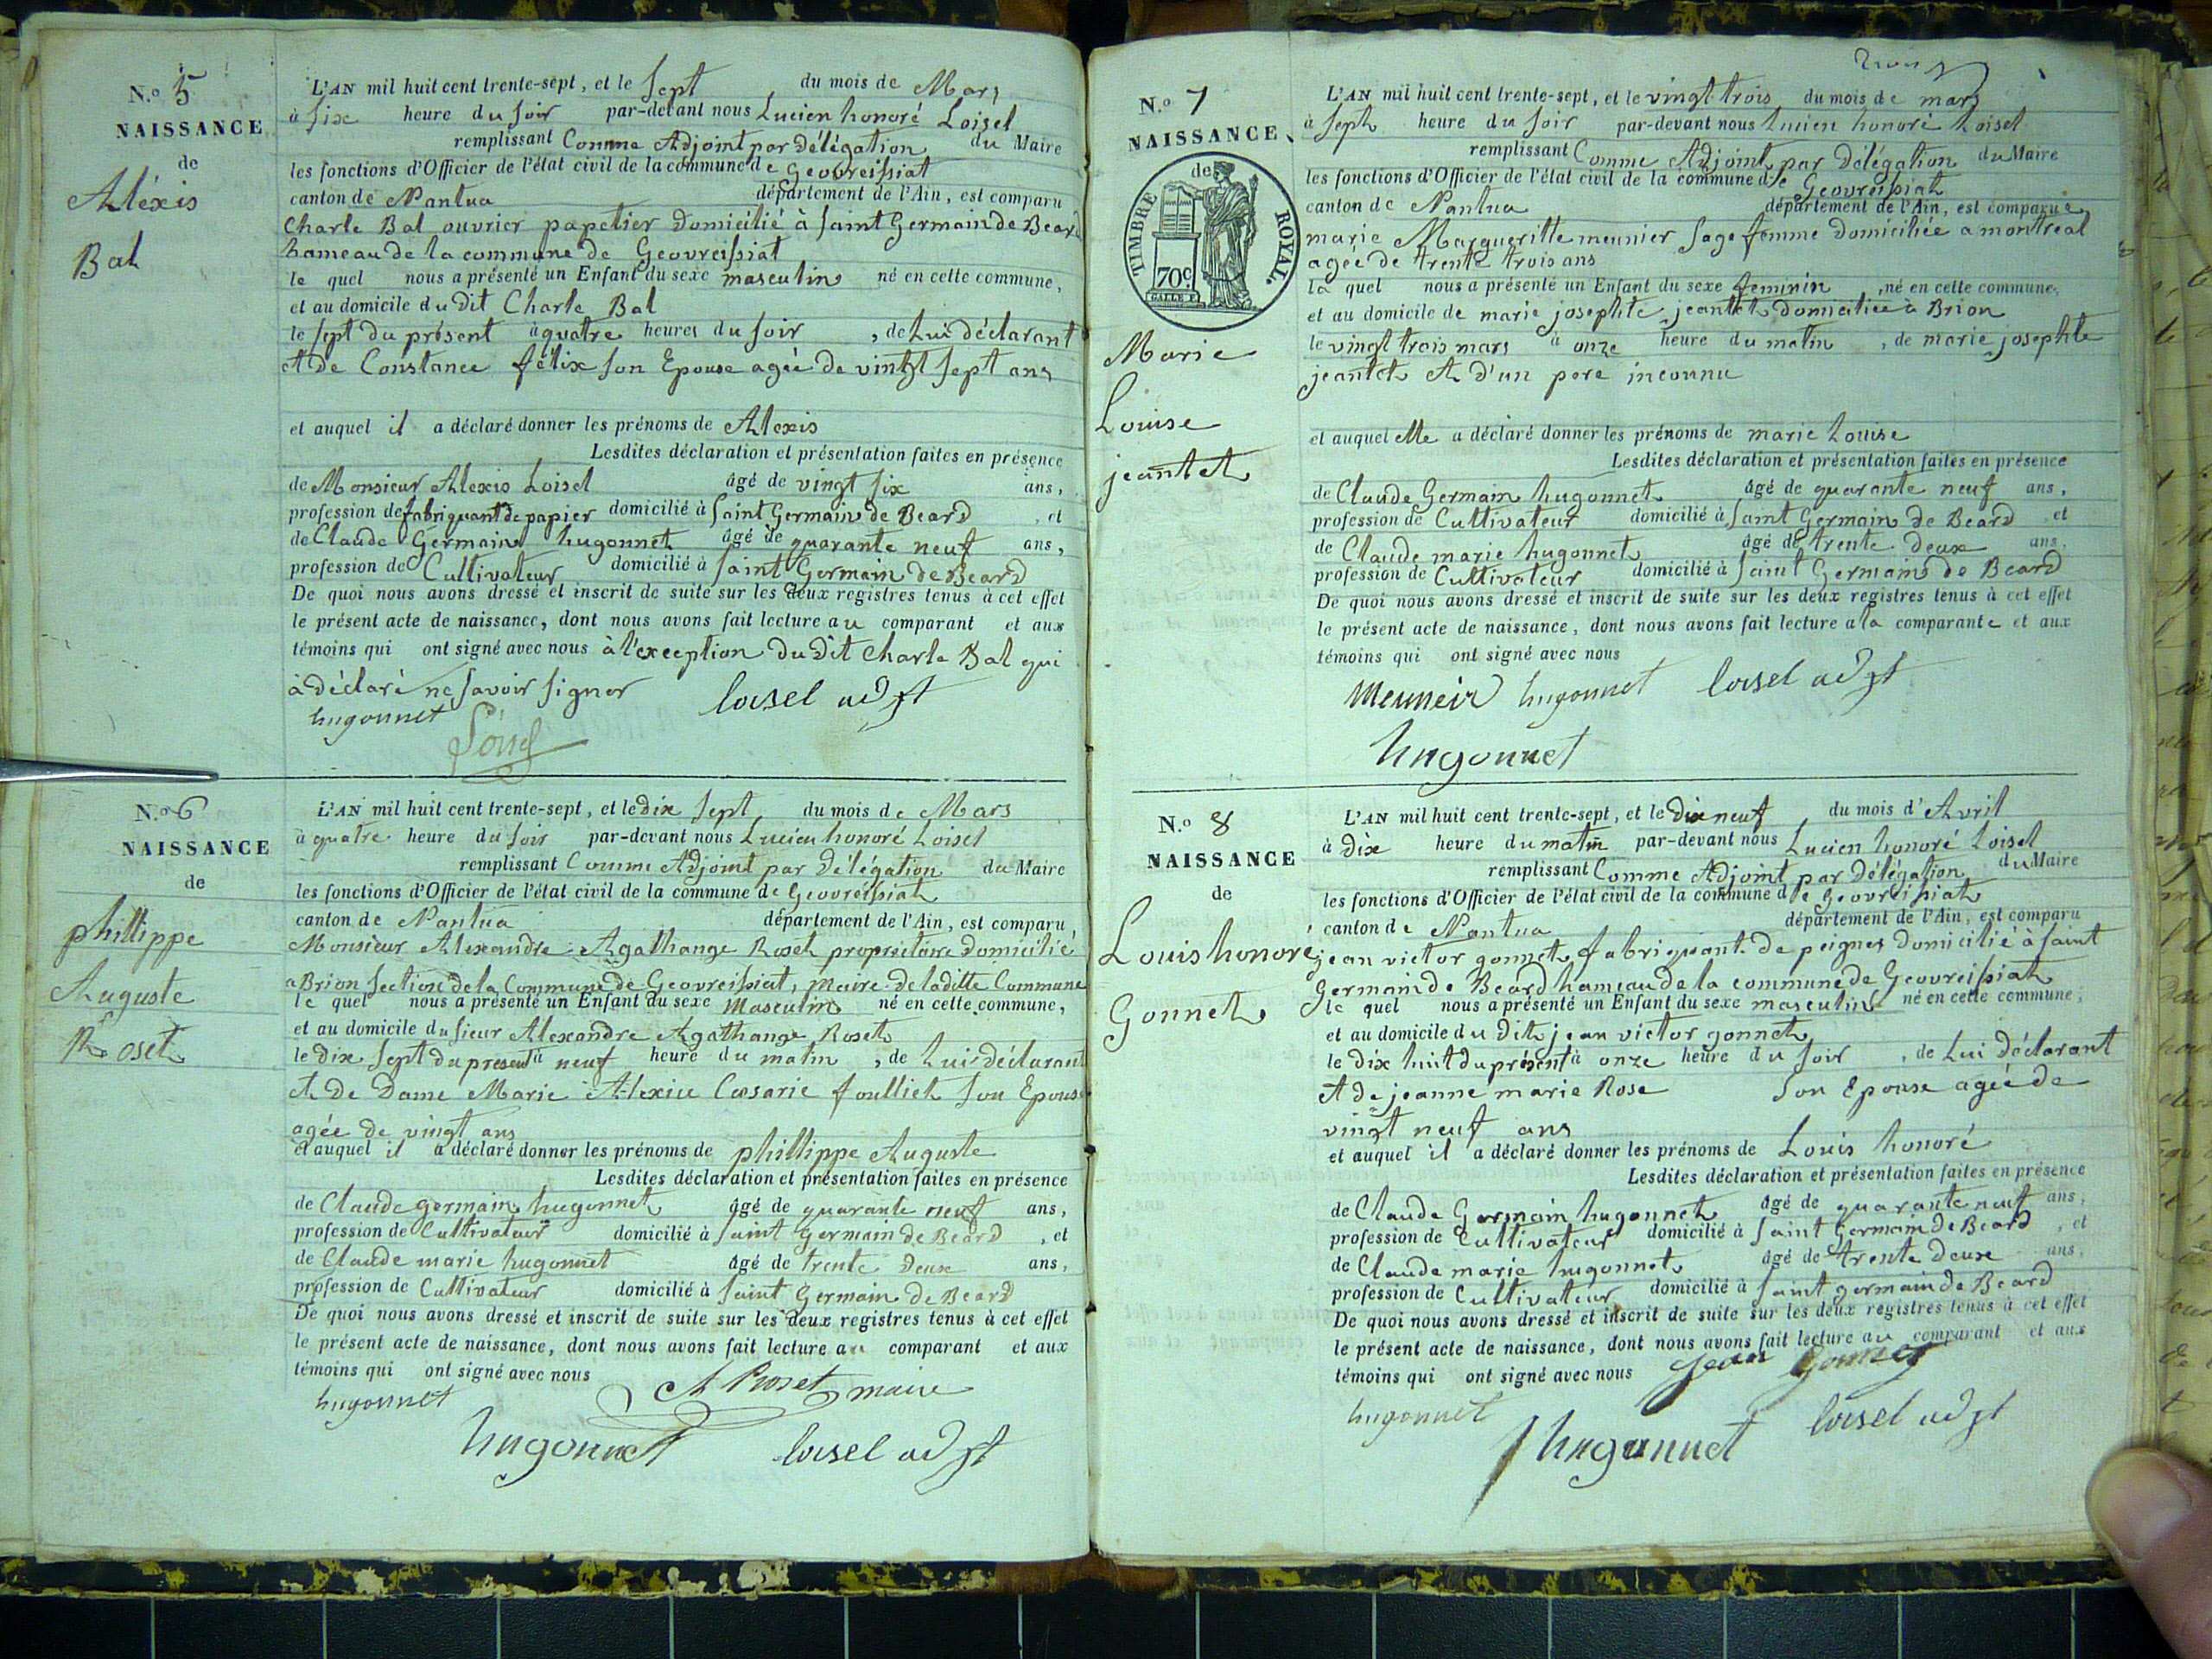 N.º 5
NAISSANCE
de
Aléxis
Bal
L'AN mil huit cent trente-sept, et le sept du mois de Mars
à six heure du soir par-devant nous Lucien honoré Loisel
remplissant Comme Adjoint par délégation du Maire
les fonctions d'Officier de l'état civil de la commune de Geovreissiat
canton de Nantua département de l'Ain, est comparu
Charle Bal ouvrier papetier Domicilié à Saint Germain de Beard
hameau de la commune de Geovreissiat
le quel nous a présenté un Enfant du sexe masculin né en cette commune,
et au domicile du dit Charle Bal
le sept du présent à quatre heures du soir , de Lui déclarant
et de Constance félix son Epouse agée de vingt sept ans
et auquel il a déclaré donner les prénoms de Alexis
Lesdites déclaration et présentation faites en présence
de Monsieur Alexis Loisel âgé de vingt six ans,
profession de fabriquant de papier domicilié à Saint Germain de Beard , et
de Claude Germain hugonnet âgé de quarante neuf ans,
profession de Cultivateur domicilié à Saint Germain de Beard
De quoi nous avons dressé et inscrit de suite sur les deux registres tenus à cet effet
le présent acte de naissance, dont nous avons fait lecture au comparant et aux
témoins qui ont signé avec nous à l'exception du dit Charle Bal qui
à déclaré ne savoir signer
hugonnet loisel adjt
N.º 6
NAISSANCE
de
phillippe
Auguste
Roset
L'AN mil huit cent trente-sept, et le dix sept du mois de Mars
à quatre heure du soir par-devant nous Lucien honoré Loisel
remplissant Comme Adjoint par délégation du Maire
les fonctions d'Officier de l'état civil de la commune de Geovreissiat
canton de Nantua département de l'Ain, est comparu,
Monsieur Alexandre Agathange Roset propriétaire Domicilié
a Brion section de la Commune de Geovreissiat, Maire de laditte Commune
le quel nous a présenté un Enfant du sexe Masculin né en cette commune,
et au domicile du sieur Alexandre Agathange Roset
le dix sept du present à neuf heure du matin , de Lui déclarant
et De Dame Marie Alexiu Cesarie foulliet son Epouse
agée de vingt ans
et auquel il a déclaré donner les prénoms de phillippe Auguste
Lesdites déclaration et présentation faites en présence
de Claude germain hugonnet âgé de quarante neuf ans,
profession de Cultivateur domicilié à Saint Germain de Beard , et
de Claude marie hugonnet âgé de trente Deux ans,
profession de Cultivateur domicilié à Saint Germain de Beard
De quoi nous avons dressé et inscrit de suite sur les deux registres tenus à cet effet
le présent acte de naissance, dont nous avons fait lecture au comparant et aux
témoins qui ont signé avec nous
hugonnet A Roset maire
hugonnet loisel adjt
N.º 7
NAISSANCE
de
TIMBRE ROYAL.
70c.
GALLE F.
Marie
Louise
jeantet
L'AN mil huit cent trente-sept, et le vingt trois du mois de mars
à sept heure du soir par-devant nous Lucien honoré Loisel
remplissant Comme Adjoint par Délégation du Maire
les fonctions d'Officier de l'état civil de la commune de Geovreissiat
canton de Nantua département de l'Ain, est comparue
marie Margueritte meunier Sage femme Domiciliée a montreal
agée de trente trois ans
la quel nous a présenté un Enfant du sexe feminin , né en cette commune,
et au domicile de marie josephte jeantet Domiciliée à Brion
le vingt trois mars à onze heure du matin , de marie josephte
jeantet et d'un pere inconnu
et auquel elle a déclaré donner les prénoms de marie Louise
Lesdites déclaration et présentation faites en présence
de Claude Germain hugonnet âgé de quarante neuf ans,
profession de Cultivateur domicilié à Saint Germain de Beard , et
de Claude marie hugonnet âgé de trente deux ans,
profession de Cultivateur domicilié à Saint Germain de Beard
De quoi nous avons dressé et inscrit de suite sur les deux registres tenus à cet effet
le présent acte de naissance, dont nous avons fait lecture a la comparante et aux
témoins qui ont signé avec nous
Meuneir hugonnet loisel adjt
hugonnet
N.º 8
NAISSANCE
de
Louis honoré
Gonnet
L'AN mil huit cent trente-sept, et le Dix neuf du mois d'Avril
à Dix heure du matin par-devant nous Lucien honoré Loisel
remplissant Comme Adjoint par Délégation du Maire
les fonctions d'Officier de l'état civil de la commune de Geovreissiat
canton de Nantua département de l'Ain, est comparu
jean victor gonnet fabriquant de peignes Domicilié à Saint
Germain de Beard hameau de la commune de Geovreissiat
le quel nous a présenté un Enfant du sexe masculin né en cette commune,
et au domicile du dit jean victor gonnet
le dix huit du présent à onze heure du soir , de Lui Déclarant
et de jeanne marie Rose Son Epouse agée de
vingt neuf ans
et auquel il a déclaré donner les prénoms de Louis honoré
Lesdites déclaration et présentation faites en présence
de Claude Germain hugonnet âgé de quarante neuf ans,
profession de Cultivateur domicilié à Saint Germain de Beard , et
de Claude marie hugonnet âgé de trente deux ans,
profession de Cultivateur domicilié à Saint germain de Beard
De quoi nous avons dressé et inscrit de suite sur les deux registres tenus à cet effet
le présent acte de naissance, dont nous avons fait lecture au comparant et aux
témoins qui ont signé avec nous Jean Gonnet
hugonnet loisel adjt
hugonnet